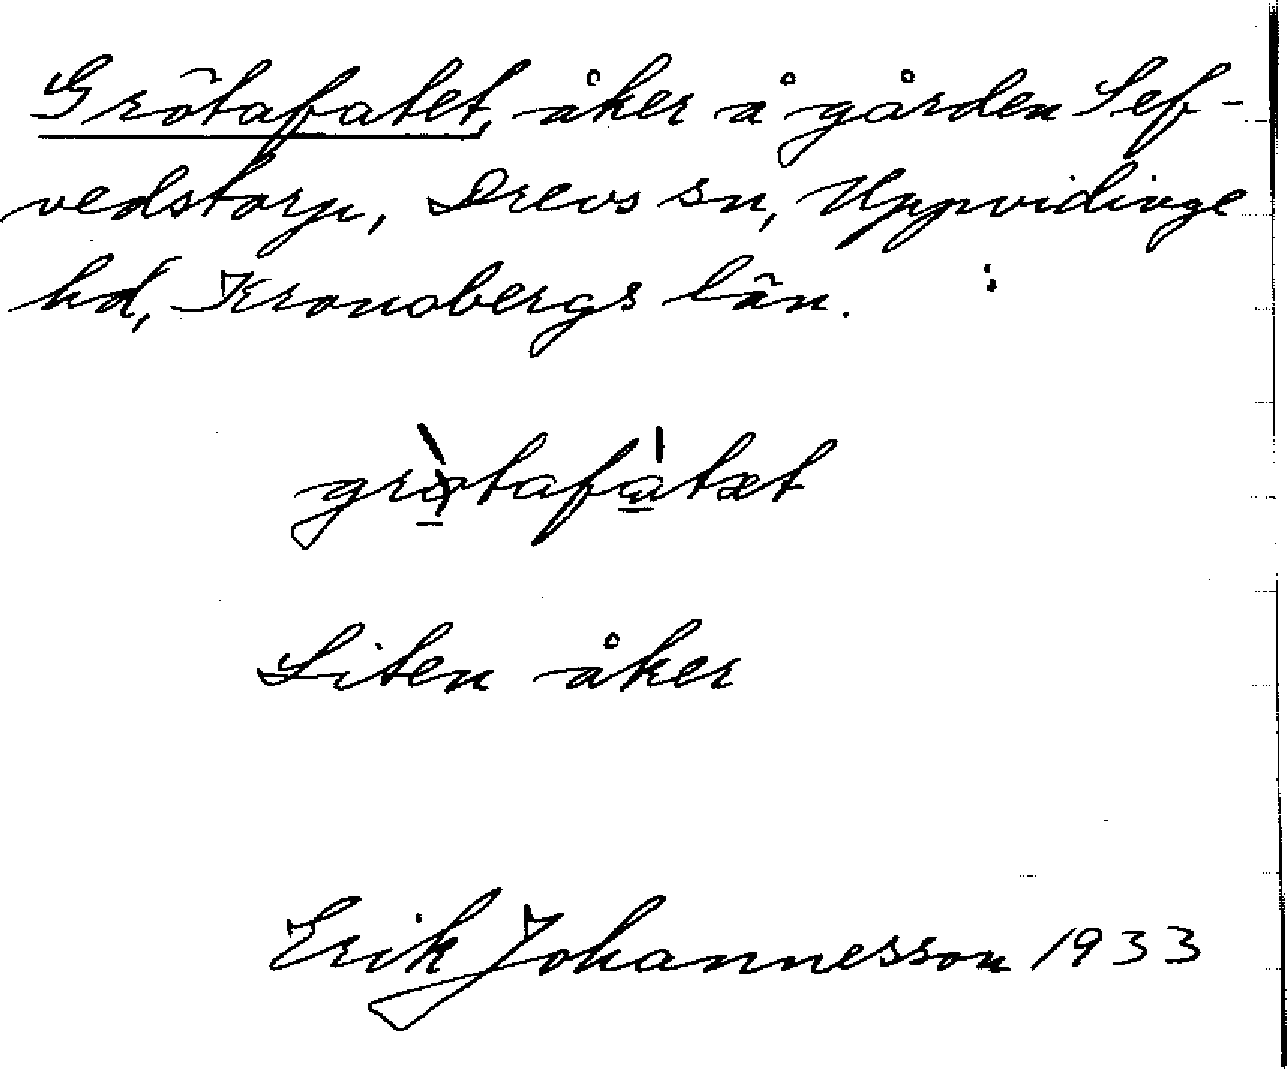 Grötafatet, åker å gården Sef-
vedstorp, Drevs sn, Uppvidinge
hd, Kronobergs län.
grø̀tafátət
Liten åker
Erik Johannesson 1933